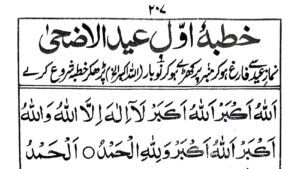 ۲۰۷
خطبۂ اوّل عید الاضحیٰ
نماز عید سے فارغ ہو کر منبر پر کھڑے ہو کر نو بار (اللہ اکبر) پڑھکر خطبہ شروع کرے
اَللّٰهُ اَكْبَرُ اَللّٰهُ اَكْبَرُ لَآ اِلٰهَ اِلَّا اللّٰهُ وَاللّٰهُ
اَكْبَرُ اَللّٰهُ اَكْبَرُ وَلِلّٰهِ الْحَمْدُ ○ اَلْحَمْدُ